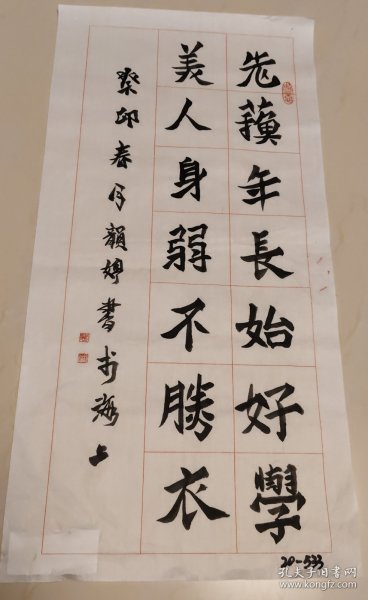 先蘋年長始好學
美人身弱不勝衣
癸卯春月韻婷書于海上
20-533
孔夫子旧书网
www.kongfz.com